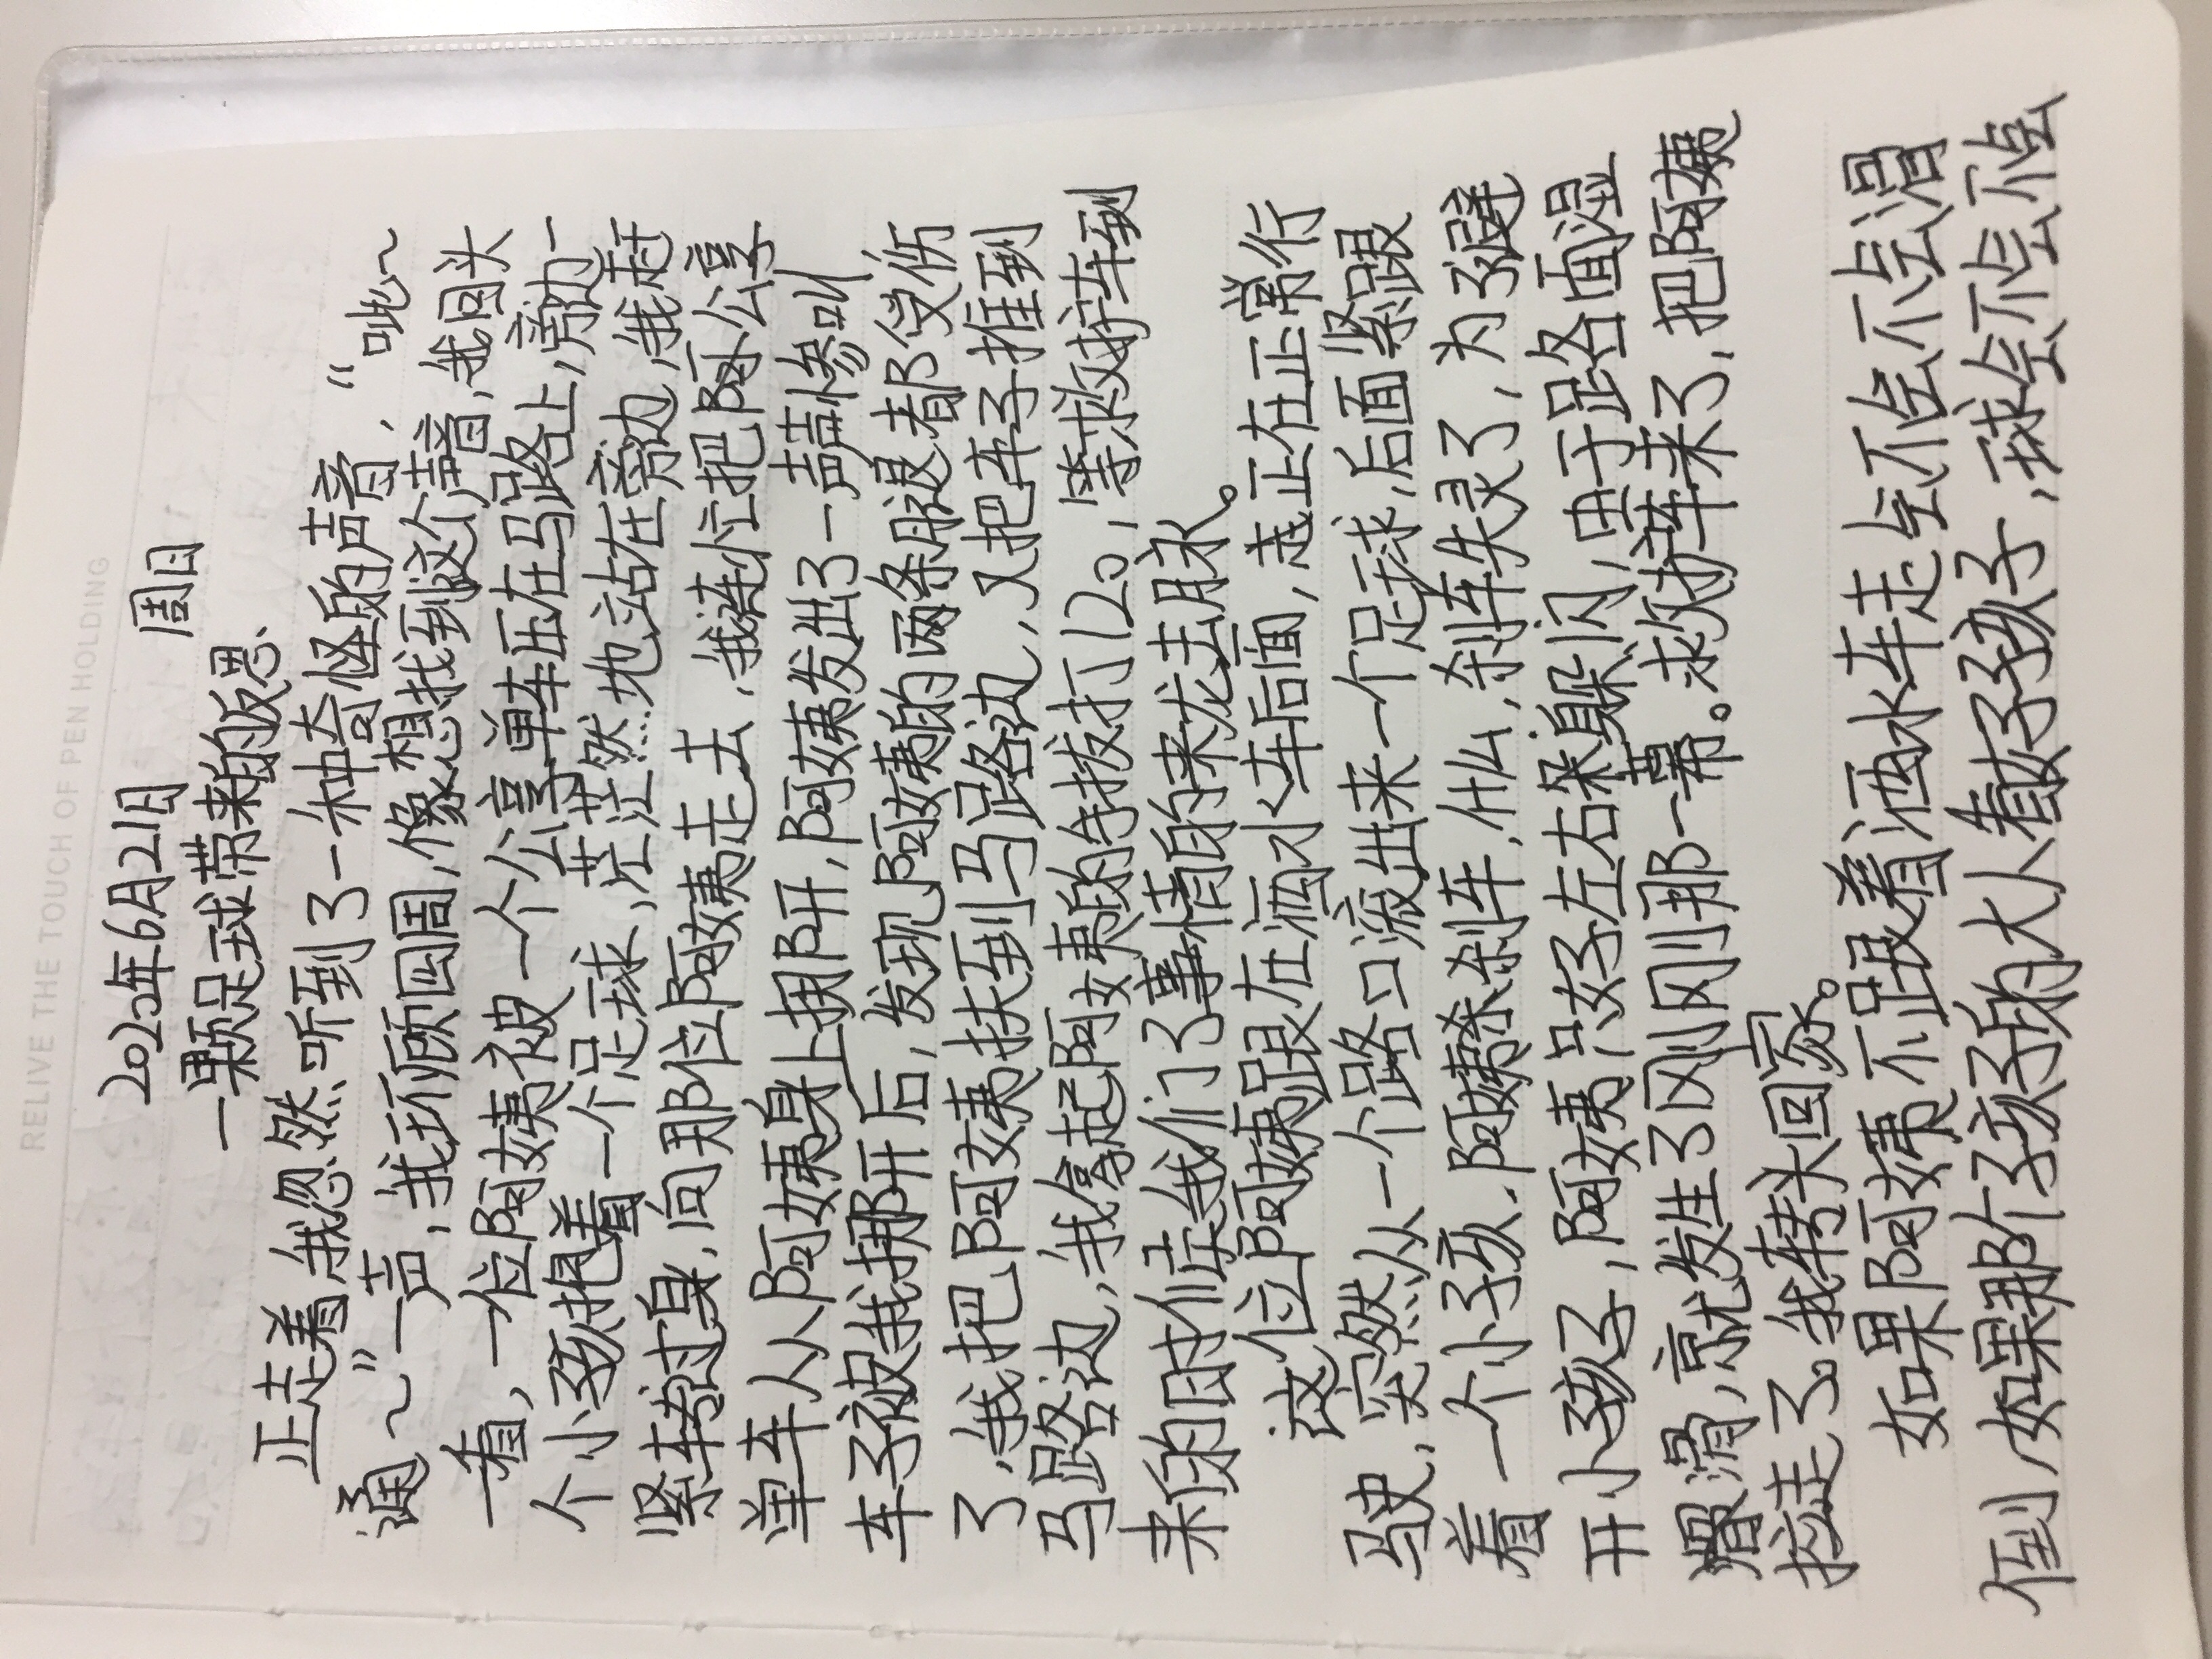 RELIVE THE TOUCH OF PEN HOLDING
2020年6月21日 周日
一颗足球带来的反思
正走着,我忽然听到了一种奇怪的声音,“呲~
通~”一声,我环顾四周,像想找到这个声音,我回头
一看,一位阿姨被一个公享单车压在马路上,旁边一
个小孩抱着一个足球,茫茫然地站在旁边,我赶
紧转过身,向那位阿姨走去,我连忙把阿公享
单车从阿姨身上挪开,阿姨发出了一声惨叫
车子被我挪开后,发现阿姨的两条腿都受伤
了,我把阿姨扶到马路边,又把车子推到
马路边,我拿起阿姨的手拨打120,等救护车到
来的时候我们了事情的来龙去脉。
这位阿姨跟在洒水车后面,走正在正常行
驶,突然从一个路口滚出来一个足球,后面紧跟
着一个小孩,阿姨杀刹车,什么,刹车失灵了,为了避
开小孩子,阿姨只好左右躲闪,由于路面湿
滑,就发生了刚刚那一幕。救护车来了,把阿姨
拉走了。我转头回家。
如果阿姨不跟着洒水车走会不会不会滑
倒,如果那个孩子的大人看好孩子,球会不会不会